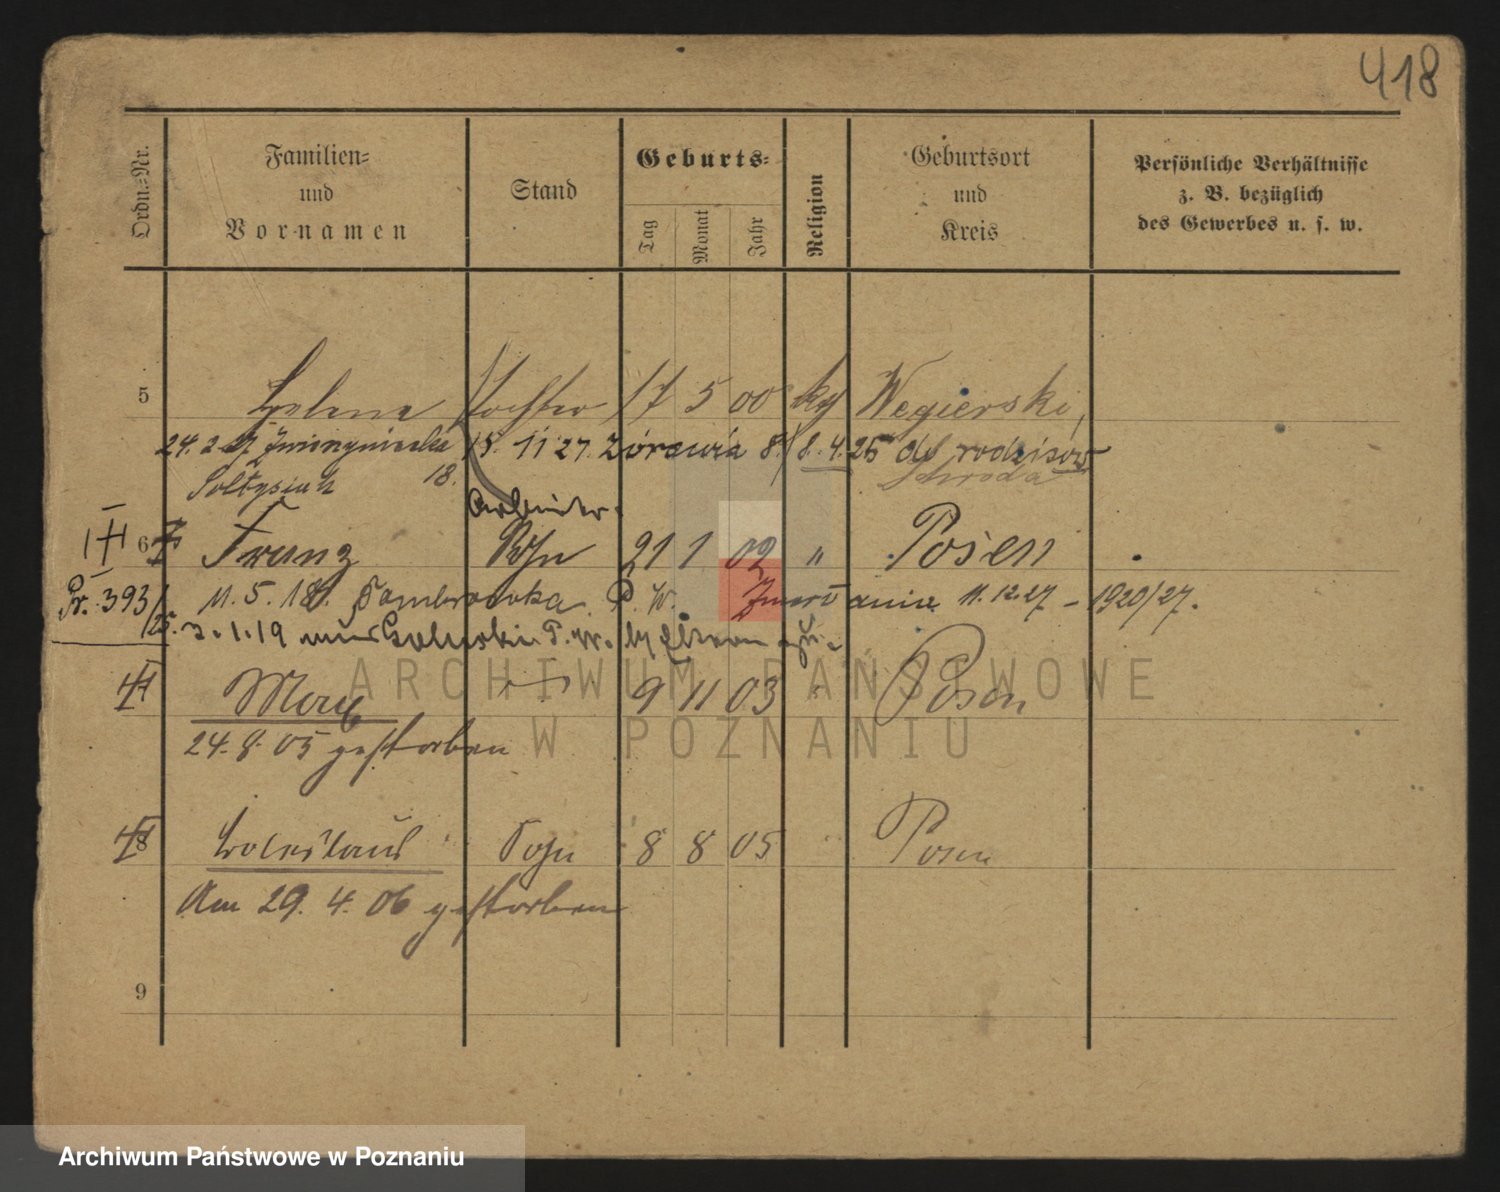 418
Ordn.-Nr.
Familien-
und
Vornamen
Stand
Geburts-
Tag
Monat
Jahr
Religion
Geburtsort
und
Kreis
Persönliche Verhältnisse
z. B. bezüglich
des Gewerbes u. s. w.
5 Helene Tochter 17 5 00 kg Wegierski,
24. 2. 27 15. 11 27. Żórawia 8. 8. 4. 25 do rodziców
Sołtysiak 18. Schroda
Arbeiter.
6 Franz Sohn 21 1 02 " Posen
Pr. 393/25. 11. 5. 18. P. W. 11. 12. 27 - 1920/27.
3. 1. 19 P. W.
Max 9 11 03 Posen
24. 8. 05 gestorben
8 Boleslaus Sohn 8 8 05 Posen
Am 29. 4. 06 gestorben
9
ARCHIWUM PAŃSTWOWE
W POZNANIU
Archiwum Państwowe w Poznaniu